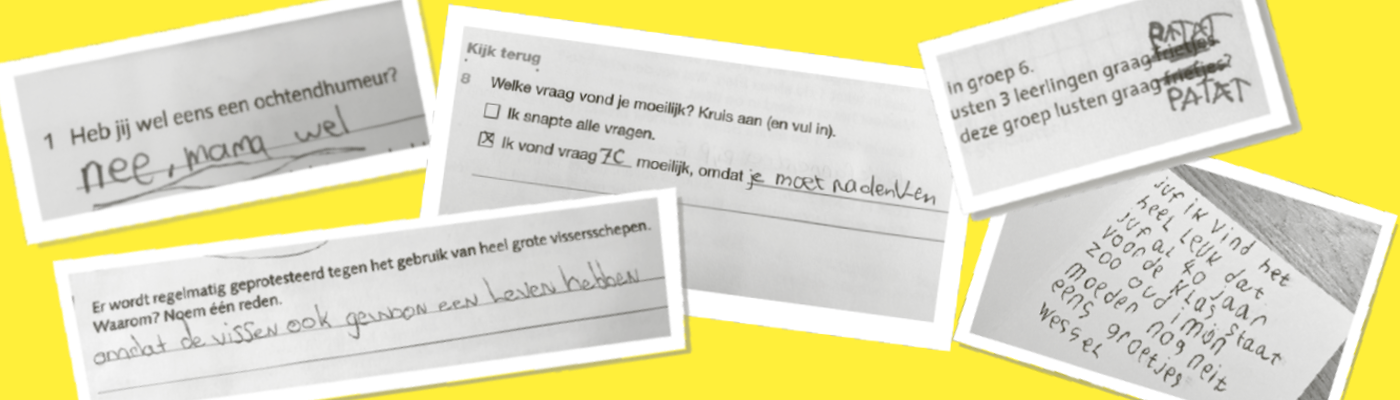 1 Heb jij wel eens een ochtendhumeur?
nee, mama wel
Kijk terug
8 Welke vraag vond je moeilijk? Kruis aan (en vul in).
Ik snapte alle vragen.
Ik vond vraag 7C moeilijk, omdat je moet nadenken
PATAT
In groep 6.
usten 3 leerlingen graag frietjes
deze groep lusten graag frietjes?
PATAT
Er wordt regelmatig geprotesteerd tegen het gebruik van heel grote vissersschepen.
Waarom? Noem één reden.
omdat de vissen ook gewoon een leven hebben
juf ik vind het
heel leuk dat
juf al 40 jaar
voor de klas staat
zoo oud is mijn
moeder nog neit
eens groetjes
wessel